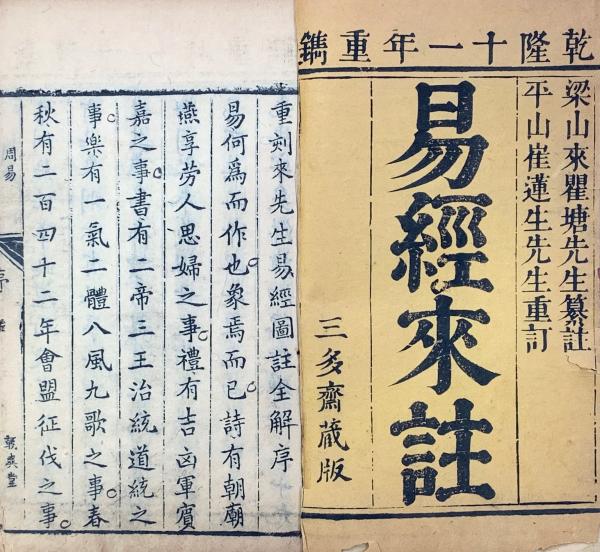 乾隆十一年重鐫
梁山來瞿塘先生纂註
平山崔蓮生先生重訂
易經來註
三多齋藏版
重刻來先生易經圖註全解序
易何爲而作也象焉而已詩有朝廟
燕享勞人思婦之事禮有吉凶軍賓
嘉之事書有二帝三王治統道統之
事樂有一氣二體八風九歌之事春
秋有二百四十二年會盟征伐之事
周易
序